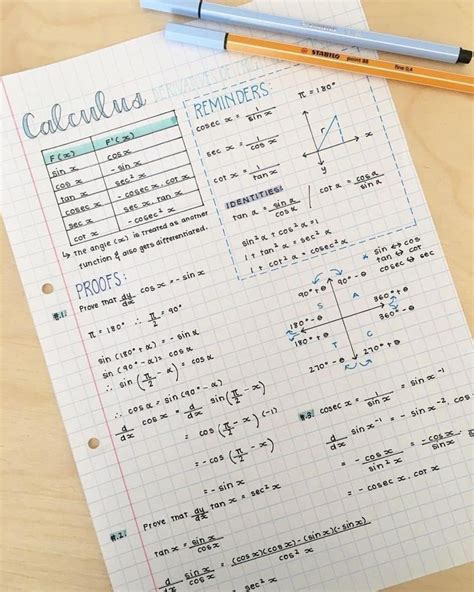 STABILO point 88
fine 0.4
Calculus
DERIVATIVES OF
F(x) F'(x)
sin x cos x
cos x - sin x
tan x sec² x
cosec x - cosec x. cot x
sec x sec x. tan x
cot x - cosec² x
↳ The angle (x) is treated as another
function & also gets differentiated.
REMINDERS:
cosec x = 1/sin x
π = 180°
sec x = 1/cos x
cot x = 1/tan x
r
x
y
IDENTITIES:
tan α = sin α/cos α / cot α = cos α/sin α
sin² α + cos² α = 1
1 + tan² α = sec² α
1 + cot² α = cosec² α
sin ↔ cos
tan ↔ cot
cosec ↔ sec
90° + θ 90° - θ
S A
180° - θ 360° + θ
180° + θ 360° - θ
T C
270° - θ 270° + θ
PROOFS:
#.1: Prove that dy/dx cos x = - sin x
π = 180° ∴ π/2 = 90°
sin (180° + α) = - sin α
sin (90° - α) = cos α
∴ sin (π/2 - x) = cos x
∴ cos α = sin (90° - α)
d/dx cos x = d/dx sin (π/2 - x)
= cos (π/2 - x) (-1)
= - cos (π/2 - x)
= - sin x
#.2: Prove that dy/dx tan x = sec² x
tan x = sin x/cos x
d/dx sin x/cos x = (cos x)(cos x) - (sin x)(-sin x)/cos² x
= sec² x
#.3: cosec x = 1/sin x = sin x⁻¹
d/dx sin x⁻¹ = - sin x⁻². cos
= - cos x/sin² x = - cos x.
= - cosec x. cot x